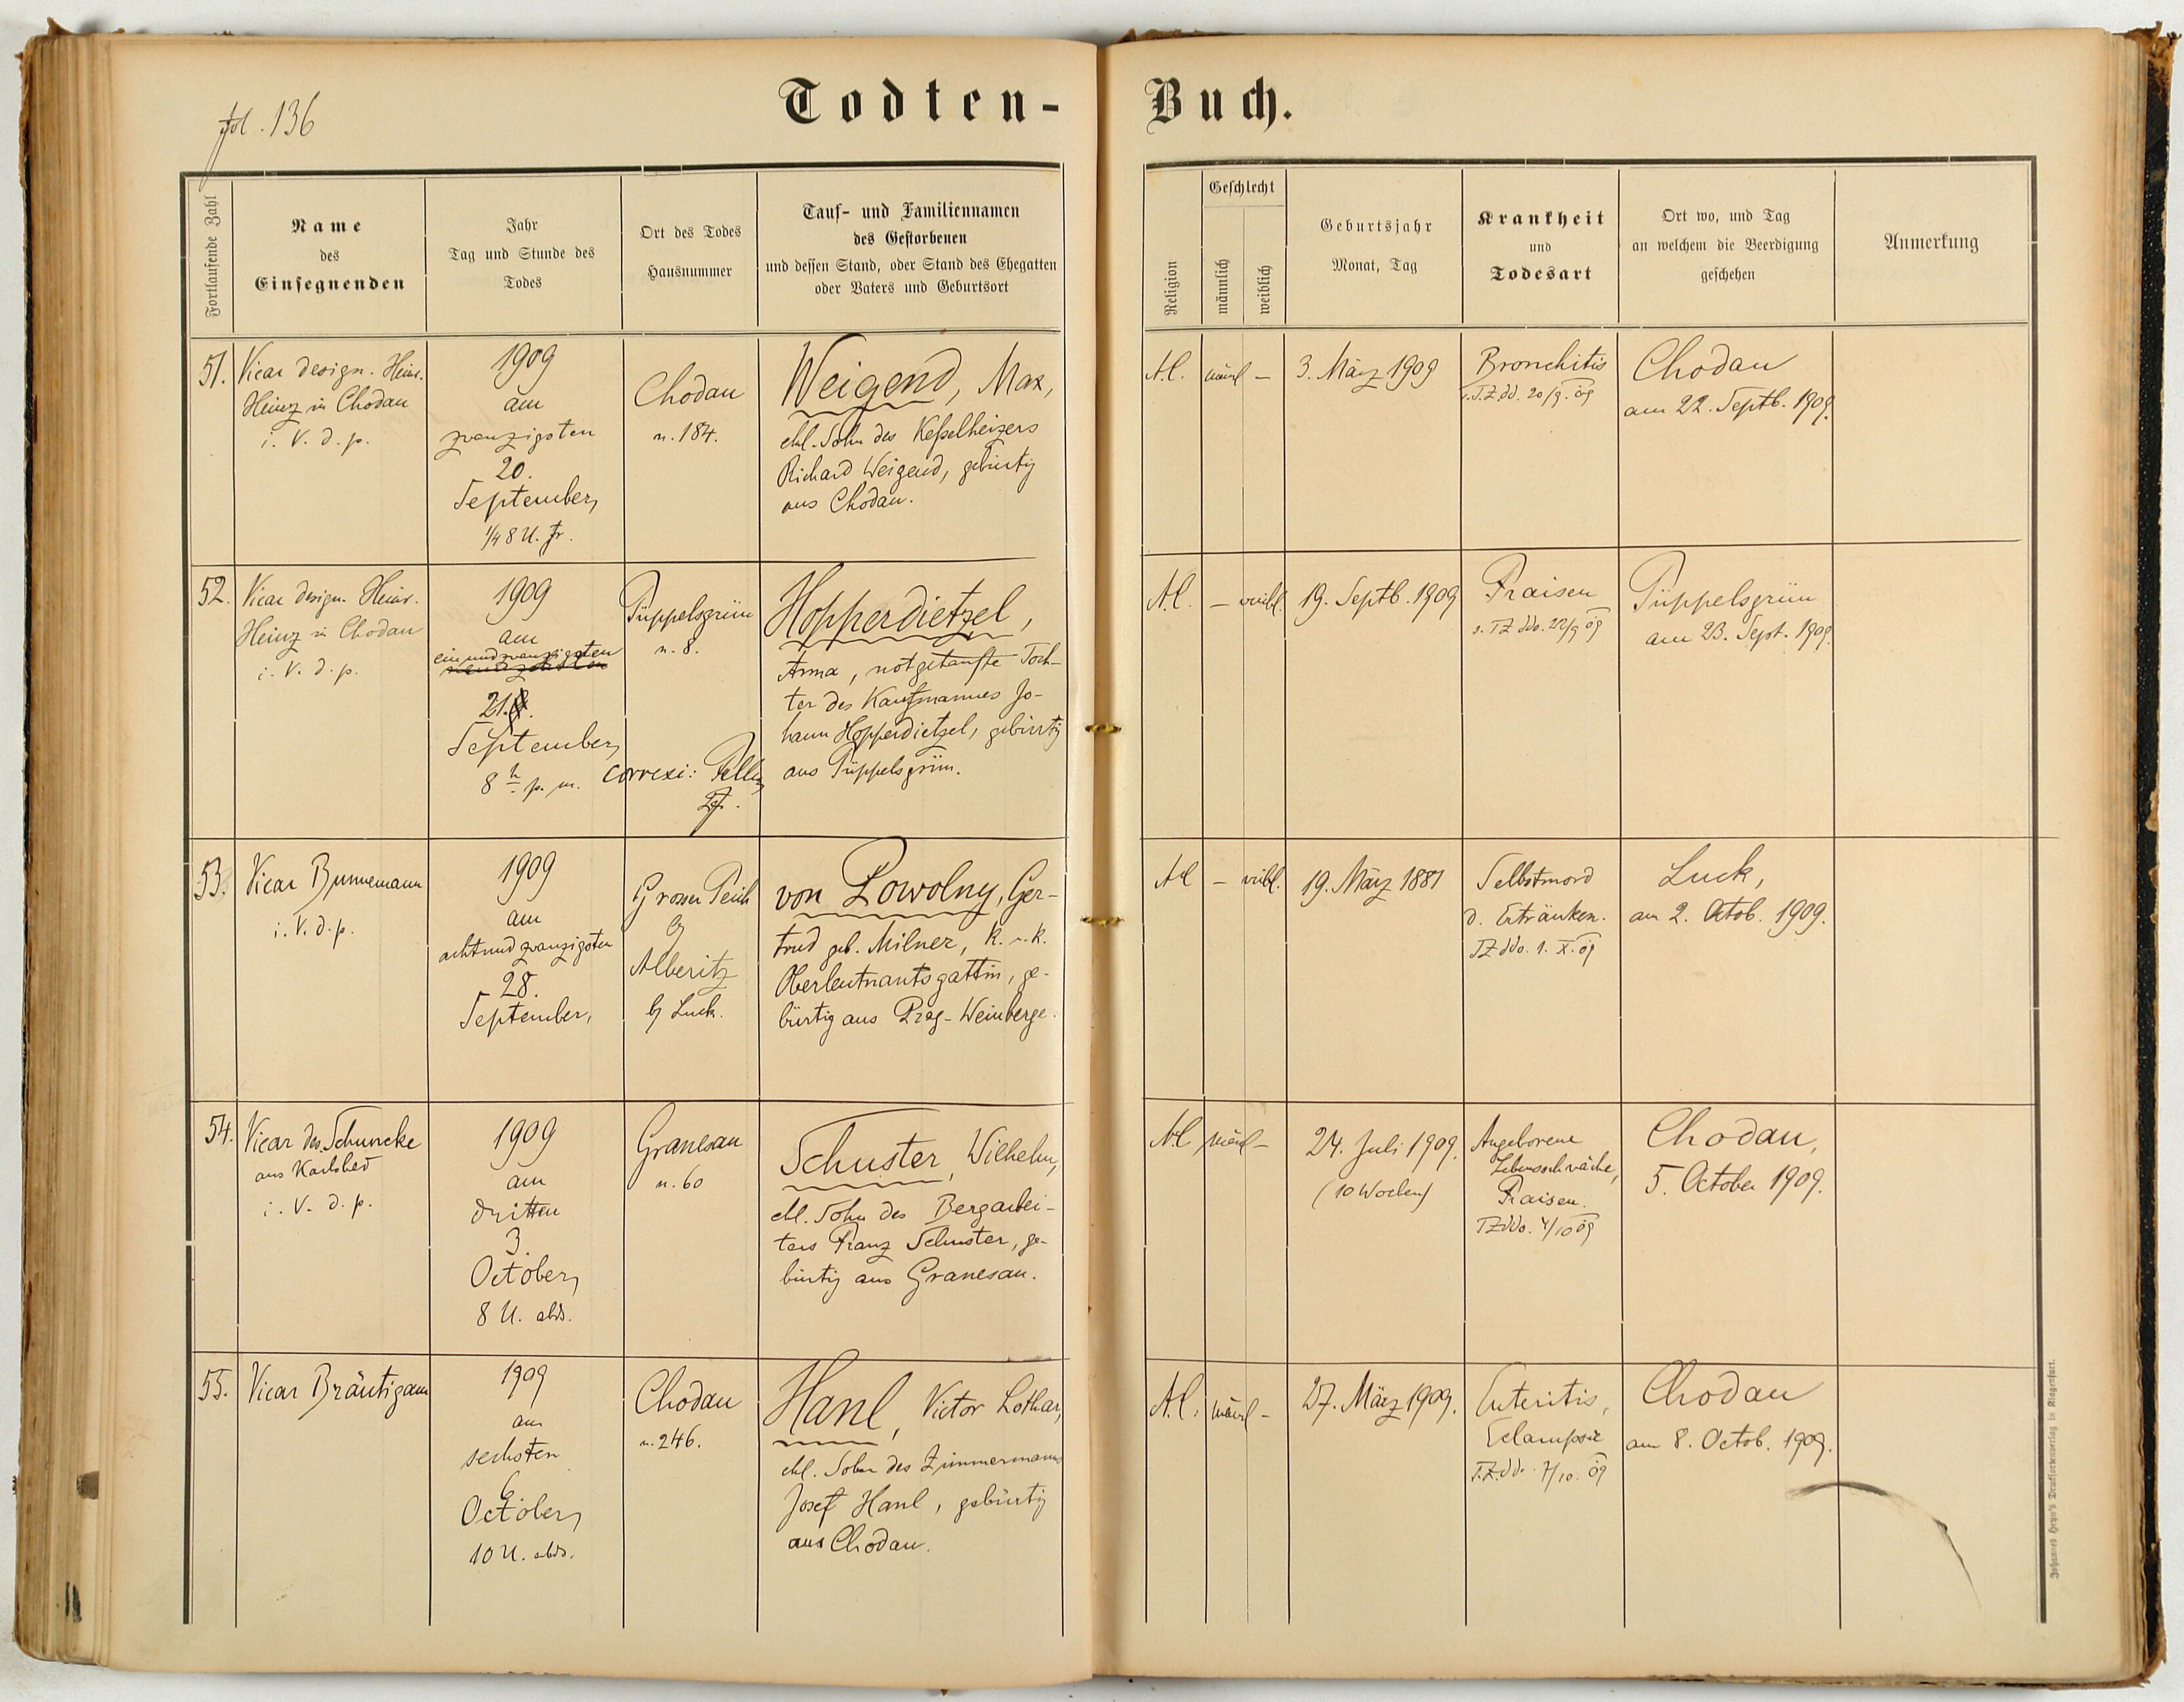 fol. 136
Todten-Buch.
Fortlaufende Zahl
Name
des
Einsegnenden
Jahr
Tag und Stunde des
Todes
Ort des Todes
Hausnummer
Tauf- und Familiennamen
des Gestorbenen
und dessen Stand, oder Stand des Ehegatten
oder Vaters und Geburtsort
Religion
Geschlecht
männlich
weiblich
Geburtsjahr
Monat, Tag
Krankheit
und
Todesart
Ort wo, und Tag
an welchem die Beerdigung
geschehen
Anmerkung
51.
Vicar design. Heinr.
Heinz in Chodau
i. V. d. p.
1909
am
zwanzigsten
20.
September,
1/4 8 U. fr.
Chodau
n. 184.
Weigend, Max,
ehl. Sohn des Keßelheizers
Richard Weigend, gebürtig
aus Chodau.
A.C.
männl –
3. März 1909
Bronchitis
s. T.Z. dd. 20/9. 09
Chodau
am 22. Septb. 1909.
52.
Vicar design. Heinr.
Heinz in Chodau
i. V. d. p.
1909
am
einundzwanzigsten
neunzehnten
21.
September,
8 h p. m.
Püppelsgrün
n. 8.
correxi:
Hopperdietzel,
Anna, notgetaufte Toch-
ter des Kaufmannes Jo-
hann Hopperdietzel, gebürtig
aus Püppelsgrün.
A.C.
– weibl.
19. Septb. 1909
Fraisen
s. TZ ddo. 22/9 09
Püppelsgrün
am 23. Sept. 1909.
53.
Vicar Bunnemann
i. V. d. p.
1909
am
achtundzwanzigsten
28.
September,
Grosser Teich
bj
Alberitz
bj Luck.
von Powolny, Ger-
trud geb. Milner, k. u. k.
Oberleutnantsgattin, ge-
bürtig aus Prag-Weinberge.
AC
– weibl.
19. März 1881
Selbstmord
d. Ertränken.
TZ ddo. 1. X. 09
Luck,
am 2. Octob. 1909.
54.
Vicar des. Schuncke
aus Karlsbad
i. V. d. p.
1909
am
dritten
3.
October,
8 U. abds.
Granesau
n. 60
Schuster, Wilhelm,
ehl. Sohn des Bergarbei-
ters Franz Schuster, ge-
bürtig aus Granesau.
A.C.
männl –
24. Juli 1909.
(10 Wochen)
Angeborene
Lebensschwäche,
Fraisen.
TZ ddo. 4/10 09
Chodau,
5. October 1909.
55.
Vicar Bräutigam
1909
am
sechsten
6.
October,
10 U. abds.
Chodau
n. 246.
Hanl, Victor Lothar,
ehl. Sohn des Zimmermanns
Josef Hanl, gebürtig
aus Chodau.
A.C.
männl –
27. März 1909.
Enteritis,
Eclampsie
T.Z. dd. 7/10. 09
Chodau
am 8. Octob. 1909.
Johannes Heyn's Drucksortenverlag in Klagenfurt.